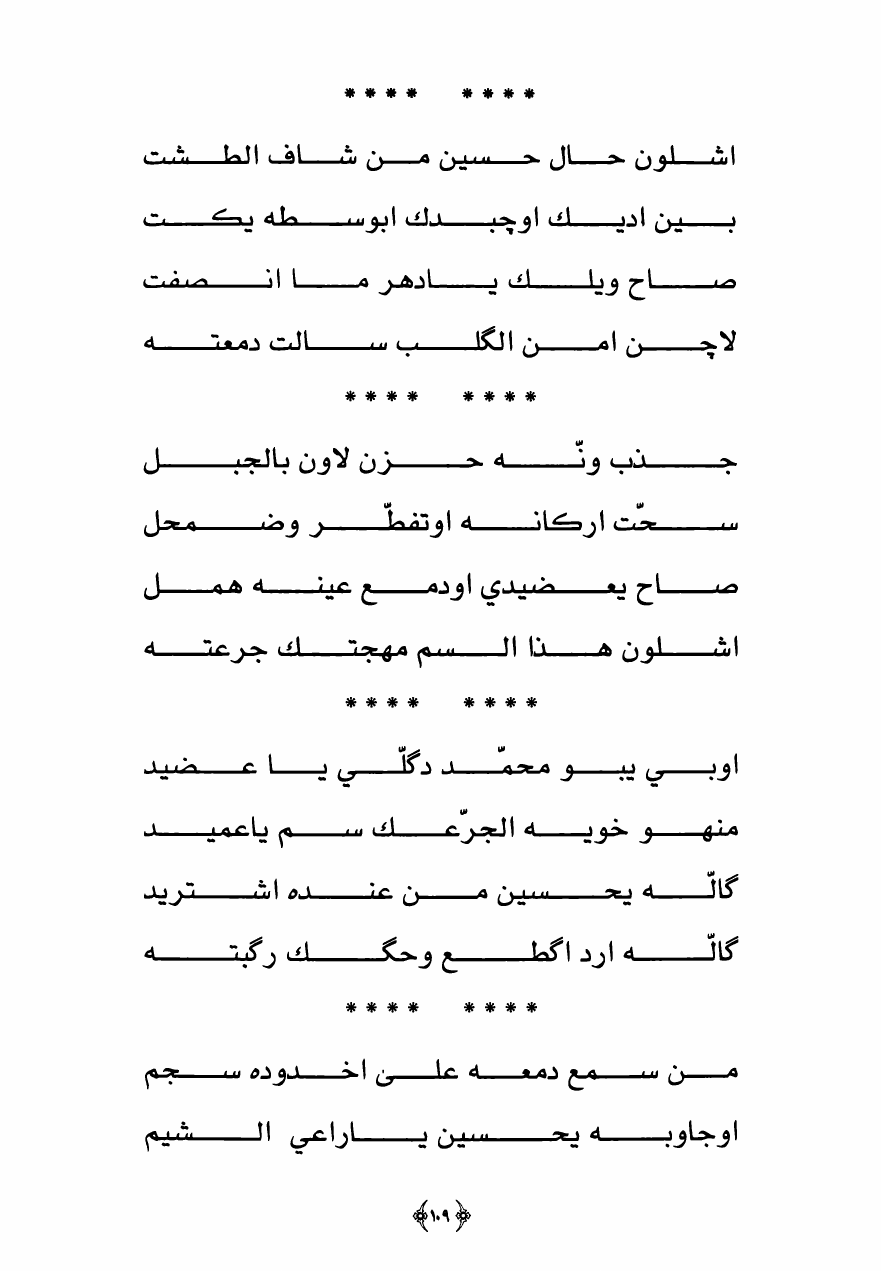 **** ****
اشلون حال حسين من شاف الطشت
بين اديك اوچبدك ابوسطه يكت
صاح ويلك يادهر ما انصفت
لاچن امن الگلب سالت دمعته
**** ****
جذب ونّه حزن لاون بالجبل
سحّت اركانه اوتفطّر وضمحل
صاح يعضيدي اودمع عينه همل
اشلون هذا السم مهجتك جرعته
**** ****
اوبي يبو محمّد دگلّي يا عضيد
منهو خويه الجرّعك سم ياعميد
گالّه يحسين من عنده اشتريد
گالّه ارد اگطع وحگك رگبته
**** ****
من سمع دمعه على اخدوده سجم
اوجاوبه يحسين ياراعي الشيم
﴿١٠٩﴾